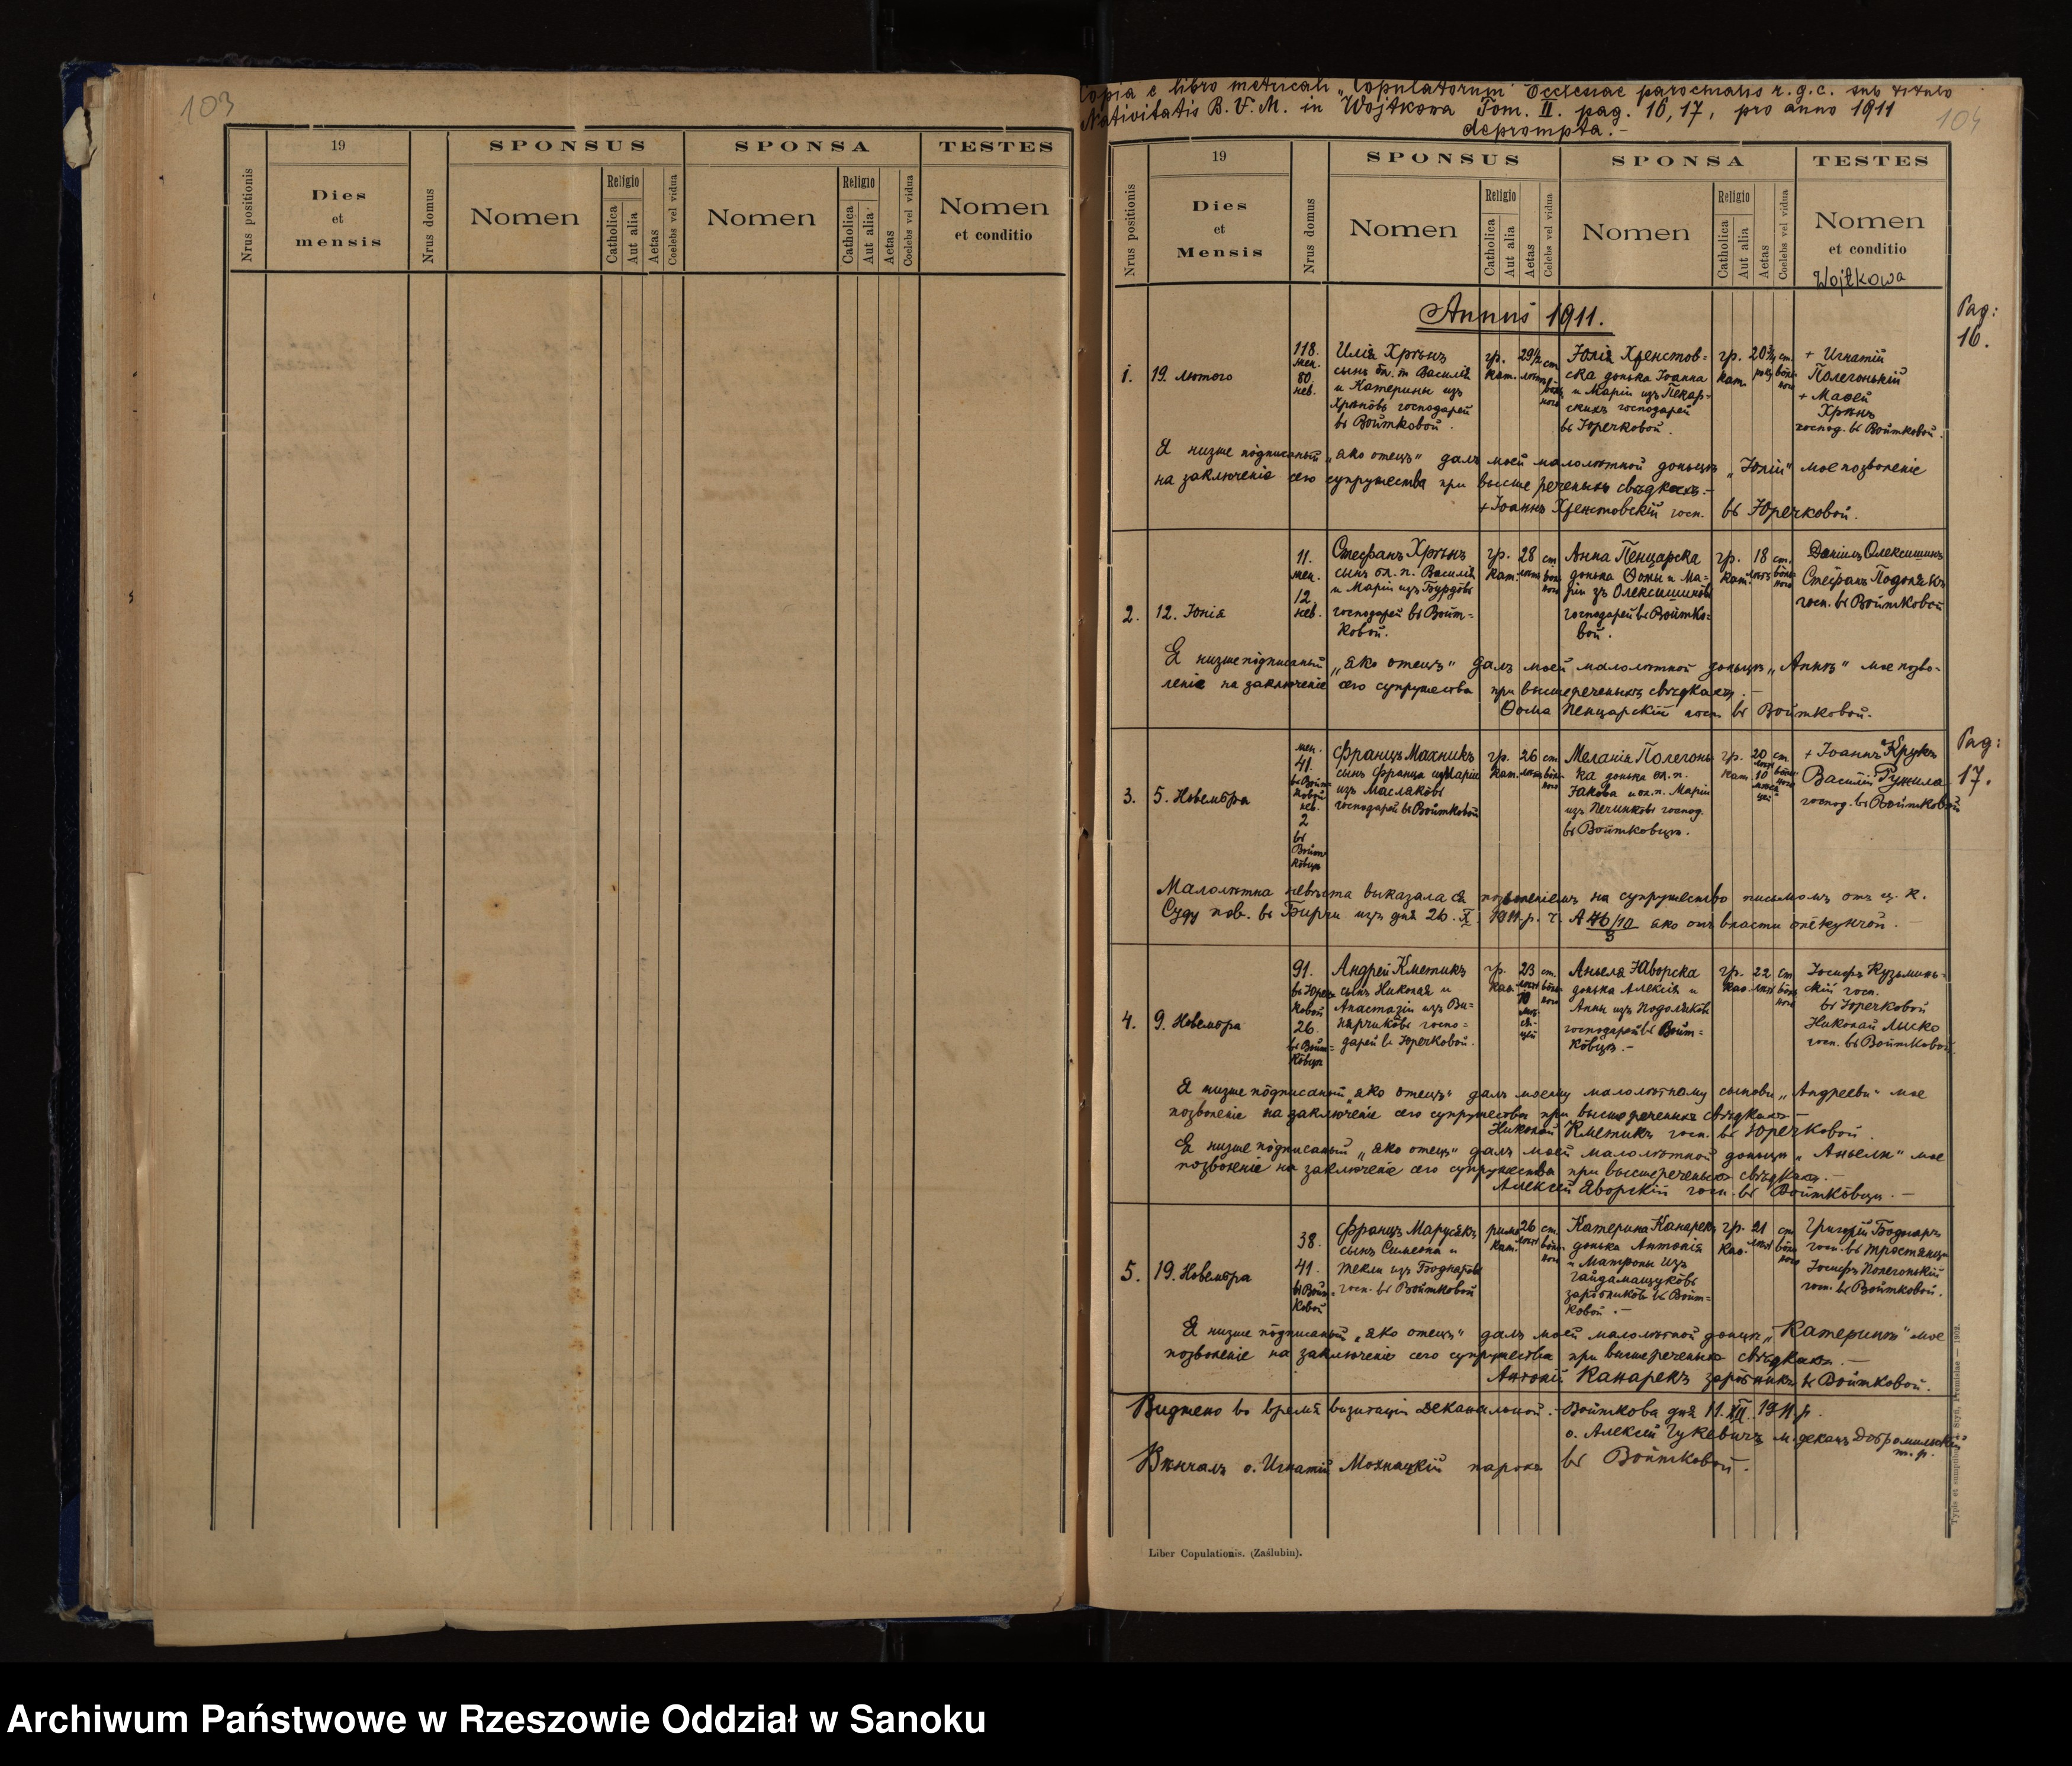 103
19
SPONSUS
SPONSA
TESTES
Nrus positionis
Dies
et
mensis
Nrus domus
Nomen
Religio
Catholica
Aut alia
Aetas
Coelebs vel vidua
Nomen
Religio
Catholica
Aut alia
Aetas
Coelebs vel vidua
Nomen
et conditio
Copia e libro metricali „Copulatorum" Ecclesiae parochialis r. g. c. sub titulo
Nativitatis B. V. M. in Wojtkowa Tom. II. pag. 16, 17, pro anno 1911
deprompta.-
104
19
SPONSUS
SPONSA
TESTES
Nrus positionis
Dies
et
Mensis
Nrus domus
Nomen
Religio
Catholica
Aut alia
Aetas
Celebs vel vidua
Nomen
Religio
Catholica
Aut alia
Aetas
Coelebs vel vidua
Nomen
et conditio
Wojtkowa
Annus 1911.
Pag:
16.
1.
19. лютого
118.
жен.
80.
нев.
Илія Хрѣнъ
сынъ бл. п. Василія
и Катерины изъ
Хрѣнôвъ господарей
въ Войтковой.
гр.
кат.
29½
ст.
Юлія Хренстов=
ска донька Іоанна
и Маріи изъ Пекар-
скихъ господарей
въ Юречковой.
гр.
кат.
20¾
ст.
+ Игнатій
Полегонькій
+ Матей
Хрѣнъ
господ. въ Войтковой.
Я низше пôдписаный „яко отецъ" далъ моей малолѣтной доньцѣ „Юліи" мое позволеніе
на заключеніе сего супружества при высше реченыхъ свѣдкахъ.-
+ Іоаннъ Хренстовскій госп. въ Юречковой.
2.
12. Юнія
11.
жен.
12.
нев.
Стефанъ Хрѣнъ
сынъ бл. п. Василія
и Маріи изъ Бурдôвъ
господарей въ Войт=
ковой.
гр.
кат.
28
лѣтъ
ст.
Анна Пенцарска
донька Ѳомы и Ма=
ріи зъ Олексишинôвъ
господарей въ Войтко=
вой.
гр.
кат.
18
лѣтъ
ст.
Даніилъ Олексишинъ
Стефанъ Подолякъ
госп. въ Войтковой
Я низше пôдписаный „яко отецъ" далъ моей малолѣтной доньцѣ „Аннѣ" мое позво-
леніе на заключеніе сего супружества при высшереченыхъ свѣдкахъ.-
Ѳома Пенцарскій госп. въ Войтковой.
Pag:
17.
3.
5. Новембра
жен.
41.
въ Войт=
ковой
нев.
2
въ
Войт
кôвци
Францъ Махникъ
сынъ Франца и Маріи
изъ Маслякôвъ
господарей въ Войтковой
гр.
кат.
26
лѣтъ
ст.
Меланія Полегонь
ка донька бл. п.
Якова и бл. п. Маріи
изъ Печинкôвъ господ.
въ Войткôвци.
гр.
кат.
20
лѣтъ
10
ст.
+ Іоаннъ Крукъ
Василій Ружила
господ. въ Войтковой
Малолѣтна невѣста выказала ся позволеніемъ на супружество письмомъ отъ ц. к.
Суду пов. въ Бирчи изъ дня 26. X. 1911. р. ч. А 46/10 яко отъ власти опѣкунчой.-
3
4.
9. Новембра
91.
въ Юреч
ковой
26.
въ Войт=
кôвци
Андрей Кметикъ
сынъ Николая и
Анастазіи изъ Ви=
господарей въ Юречковой.
гр.
кат.
23
лѣтъ
10
ст.
Аньеля Яворска
донька Алексія и
Анны изъ Подолякôвъ
господарей въ Войт=
кôвцѣ.-
гр.
кат.
22
лѣтъ
ст.
Іосифъ Кузьминь=
скій госп.
въ Юречковой
Николай Лыско
госп. въ Войтковой
Я низше пôдписаный „яко отецъ" далъ моему малолѣтному сынови „Андрееви" мое
позволеніе на заключеніе сего супружества при высшереченыхъ свѣдкахъ-
Николай Кметикъ госп. въ Юречковой.
Я низше пôдписаный „яко отецъ" далъ моей малолѣтной доньци „Аньели" мое
позволеніе на заключеніе сего супружества при высшереченыхъ свѣдкахъ.-
Алексій Яворскій госп. въ Войткôвци.-
5.
19. Новембра
38.
41.
въ Вой=
ковой
Францъ Марусякъ
сынъ Симеона и
Теклі изъ Боднарôвъ
госп. въ Войтковой
римо
кат.
26
лѣтъ
ст.
Катерина Канарек
донька Антонія
и Матроны изъ
Гайдамащукôвъ
зарôбникôвъ въ Войт=
ковой.-
гр.
кат.
21
лѣтъ
ст.
Григорій Боднаръ
госп. въ Тростянци
Іосифъ Полегонькій
госп. въ Войтковой.
Я низше пôдписаный „яко отецъ" далъ моей малолѣтной доньци „Катеринѣ" мое
позволеніе на заключеніе сего супружества при высшереченыхъ свѣдкахъ.-
Антоній Канарекъ зарôбникъ въ Войтковой.
Виджено во время визитаціи деканальной.- Войткова дня 11. XII. 1911. р.
о. Алексій Чукевичъ м. деканъ Добромильскій
m. p.
Вѣнчалъ о. Игнатій Мохнацкій парохъ въ Войтковой.
Liber Copulationis. (Zaślubin).
Archiwum Państwowe w Rzeszowie Oddział w Sanoku